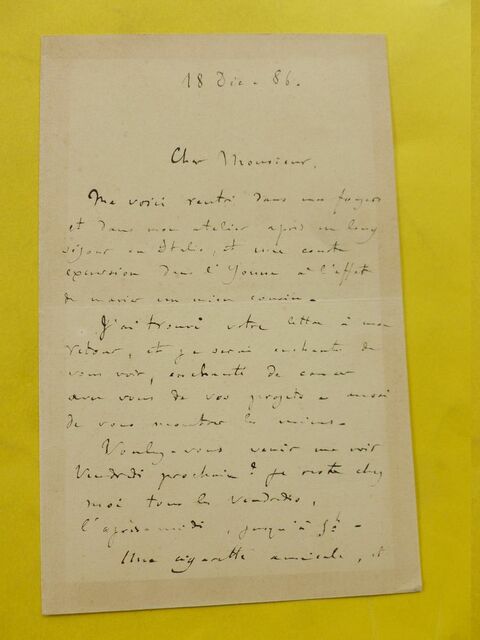 18 Déc. 86.
Cher Monsieur,
Me voici rentré dans mes foyers
et dans mon atelier après un long
séjour en Italie, et une courte
excursion dans l'Yonne à l'effet
de marier un mien cousin.
J'ai trouvé votre lettre à mon
retour, et je serai enchanté de
vous voir, enchanté de causer
avec vous de vos projets et aussi
de vous montrer les miens.
Voulez-vous venir me voir
Vendredi prochain? je reste chez
moi tous les Vendredis,
l'après-midi, jusqu'à 5h.
Une cigarette amicale, et